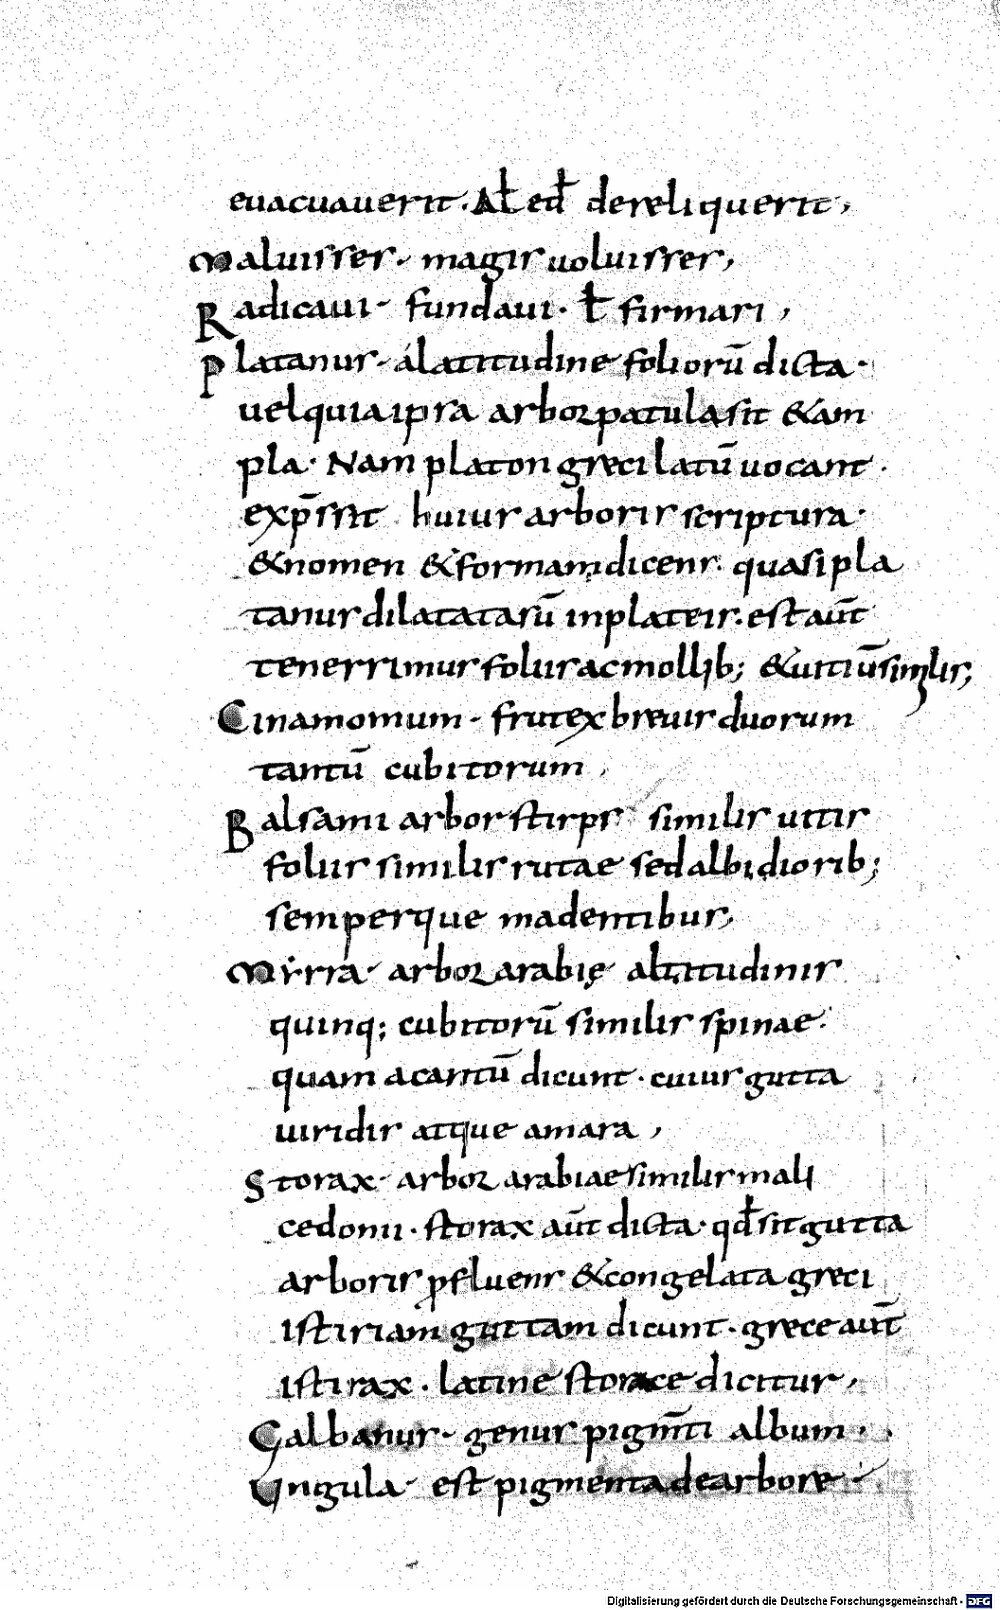 euacuauerit. Al̄ ed̄ dereliquerit,
Maluisses. magis uoluisses,
Radicaui. fundaui. ł firmasi,
Platanus. álatitudine foliorū dicta.
uelquiaipsa arborpatulasit &am
pla. Nam platon greci latū uocant.
exp̄ssit huius arboris scriptura.
&nomen &formam dicens. quasipla
tanus dilatatasū inplateis. est aūt
tenerrimus foliis acmollib; &uitiū similis,
Cinamomum. frutex breuis duorum
tantū cubitorum,
Balsami arbor stirps similis uitis
foliis similis rutae sed albidiorib;
semperque madentibus,
Myrra. arbor arabię altitudinis
quinq; cubitorū similis spinae.
quam acantū dicunt. cuius gutta
uiridis atque amara,
Storax. arbor arabiae similis mali
cedonii. storax aūt dicta. qđ sit gutta
arboris ꝓfluens &congelata greci
istiriam guttam dicunt. grece aūt
istirax. latine storace dicitur,
Galbanus. genus pigm̄ti album,
Ungula. est pigmenta dearbore
Digitalisierung gefördert durch die Deutsche Forschungsgemeinschaft - DFG